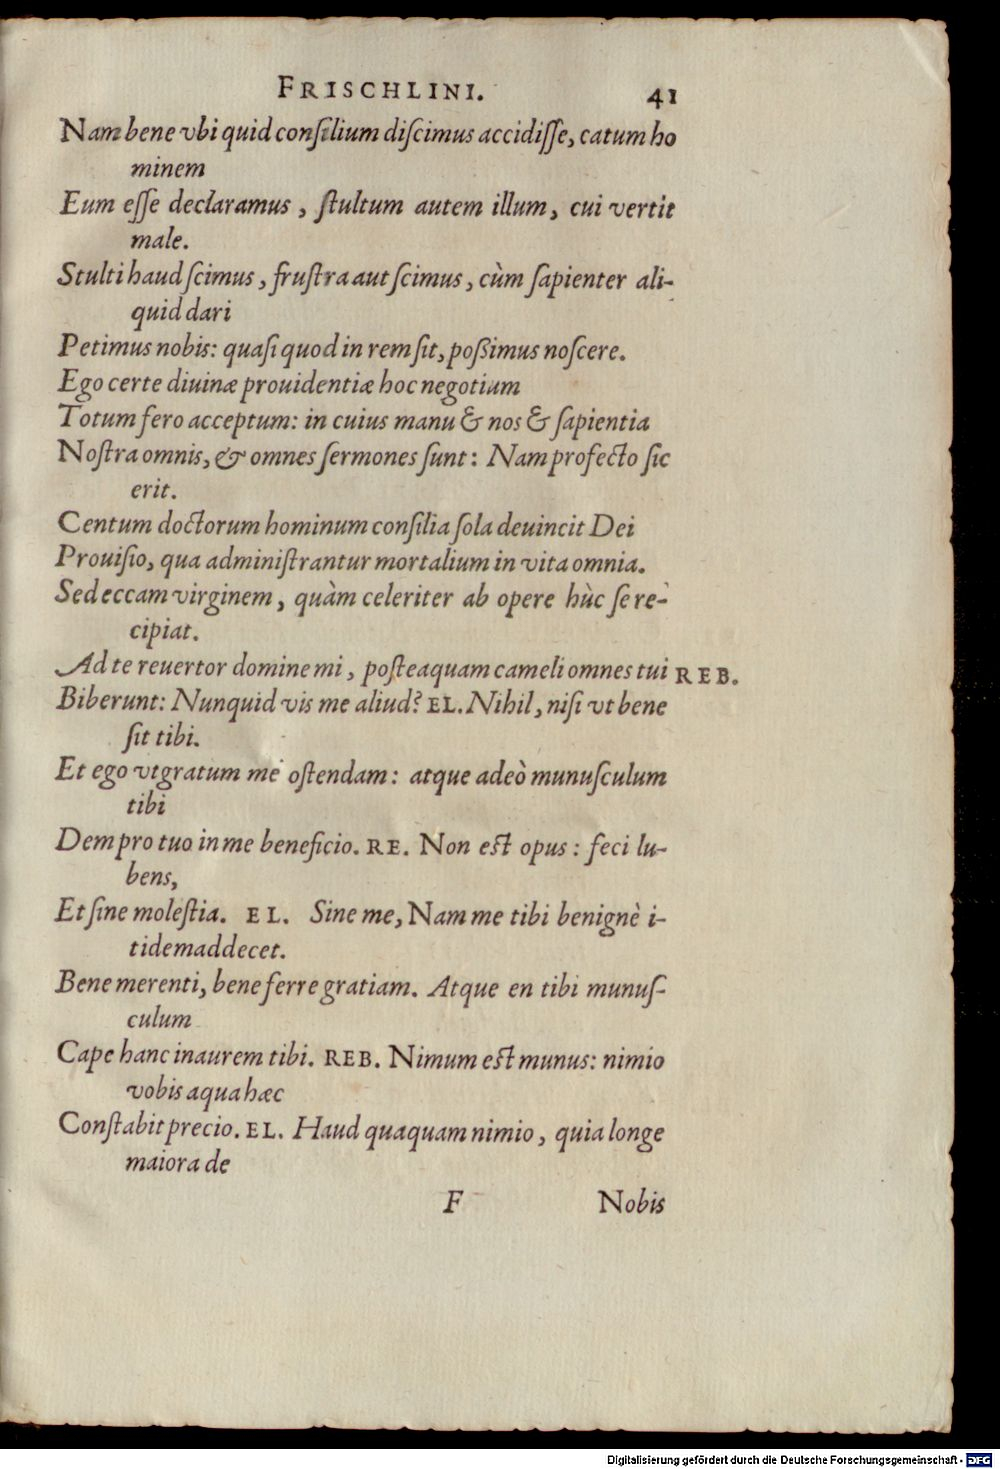 FRISCHLINI. 41
Nam bene vbi quid conſilium diſcimus accidiſſe, catum ho
minem
Eum eſſe declaramus, ſtultum autem illum, cui vertit
male.
Stulti haud ſcimus, fruſtra aut ſcimus, cùm ſapienter ali-
quid dari
Petimus nobis: quaſi quod in rem ſit, poßimus noſcere.
Ego certe diuinæ prouidentiæ hoc negotium
Totum fero acceptum: in cuius manu & nos & ſapientia
Noſtra omnis, & omnes ſermones ſunt: Nam profecto ſic
erit.
Centum doctorum hominum conſilia ſola deuincit Dei
Prouiſio, qua adminiſtrantur mortalium in vita omnia.
Sed eccam virginem, quàm celeriter ab opere hùc ſe re-
cipiat.
Ad te reuertor domine mi, poſteaquam cameli omnes tui REB.
Biberunt: Nunquid vis me aliud? EL. Nihil, niſi vt bene
ſit tibi.
Et ego vt gratum me oſtendam: atque adeò munuſculum
tibi
Dem pro tuo in me beneficio. RE. Non eſt opus: feci lu-
bens,
Et ſine moleſtia. EL. Sine me, Nam me tibi benignè i-
tidem addecet.
Bene merenti, bene ferre gratiam. Atque en tibi munuſ-
culum
Cape hanc inaurem tibi. REB. Nimum eſt munus: nimio
vobis aqua hæc
Conſtabit precio. EL. Haud quaquam nimio, quia longe
maiora de
F Nobis
Digitalisierung gefördert durch die Deutsche Forschungsgemeinschaft - DFG